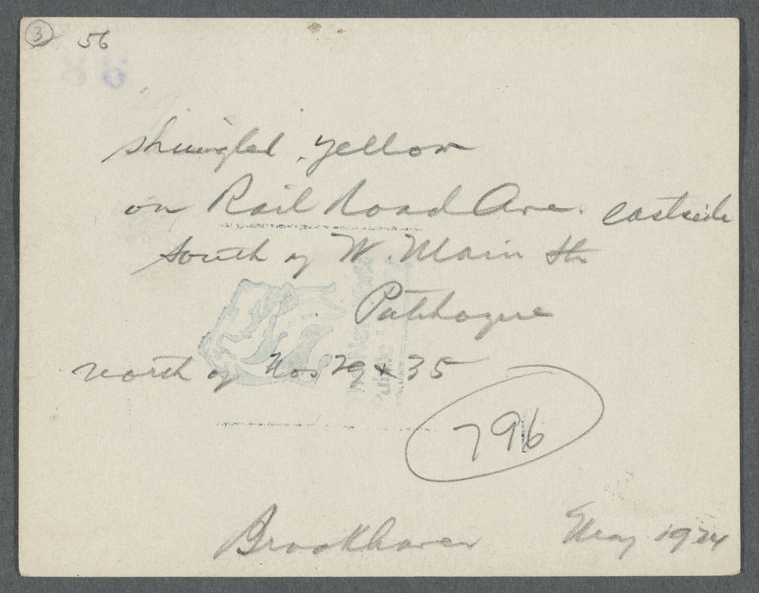 3 56
shingled, yellow
on Rail Road Ave. eastside
South of W. Main St.
Patchogue
north of Nos 29 & 35
796
Brookhaven May 1924